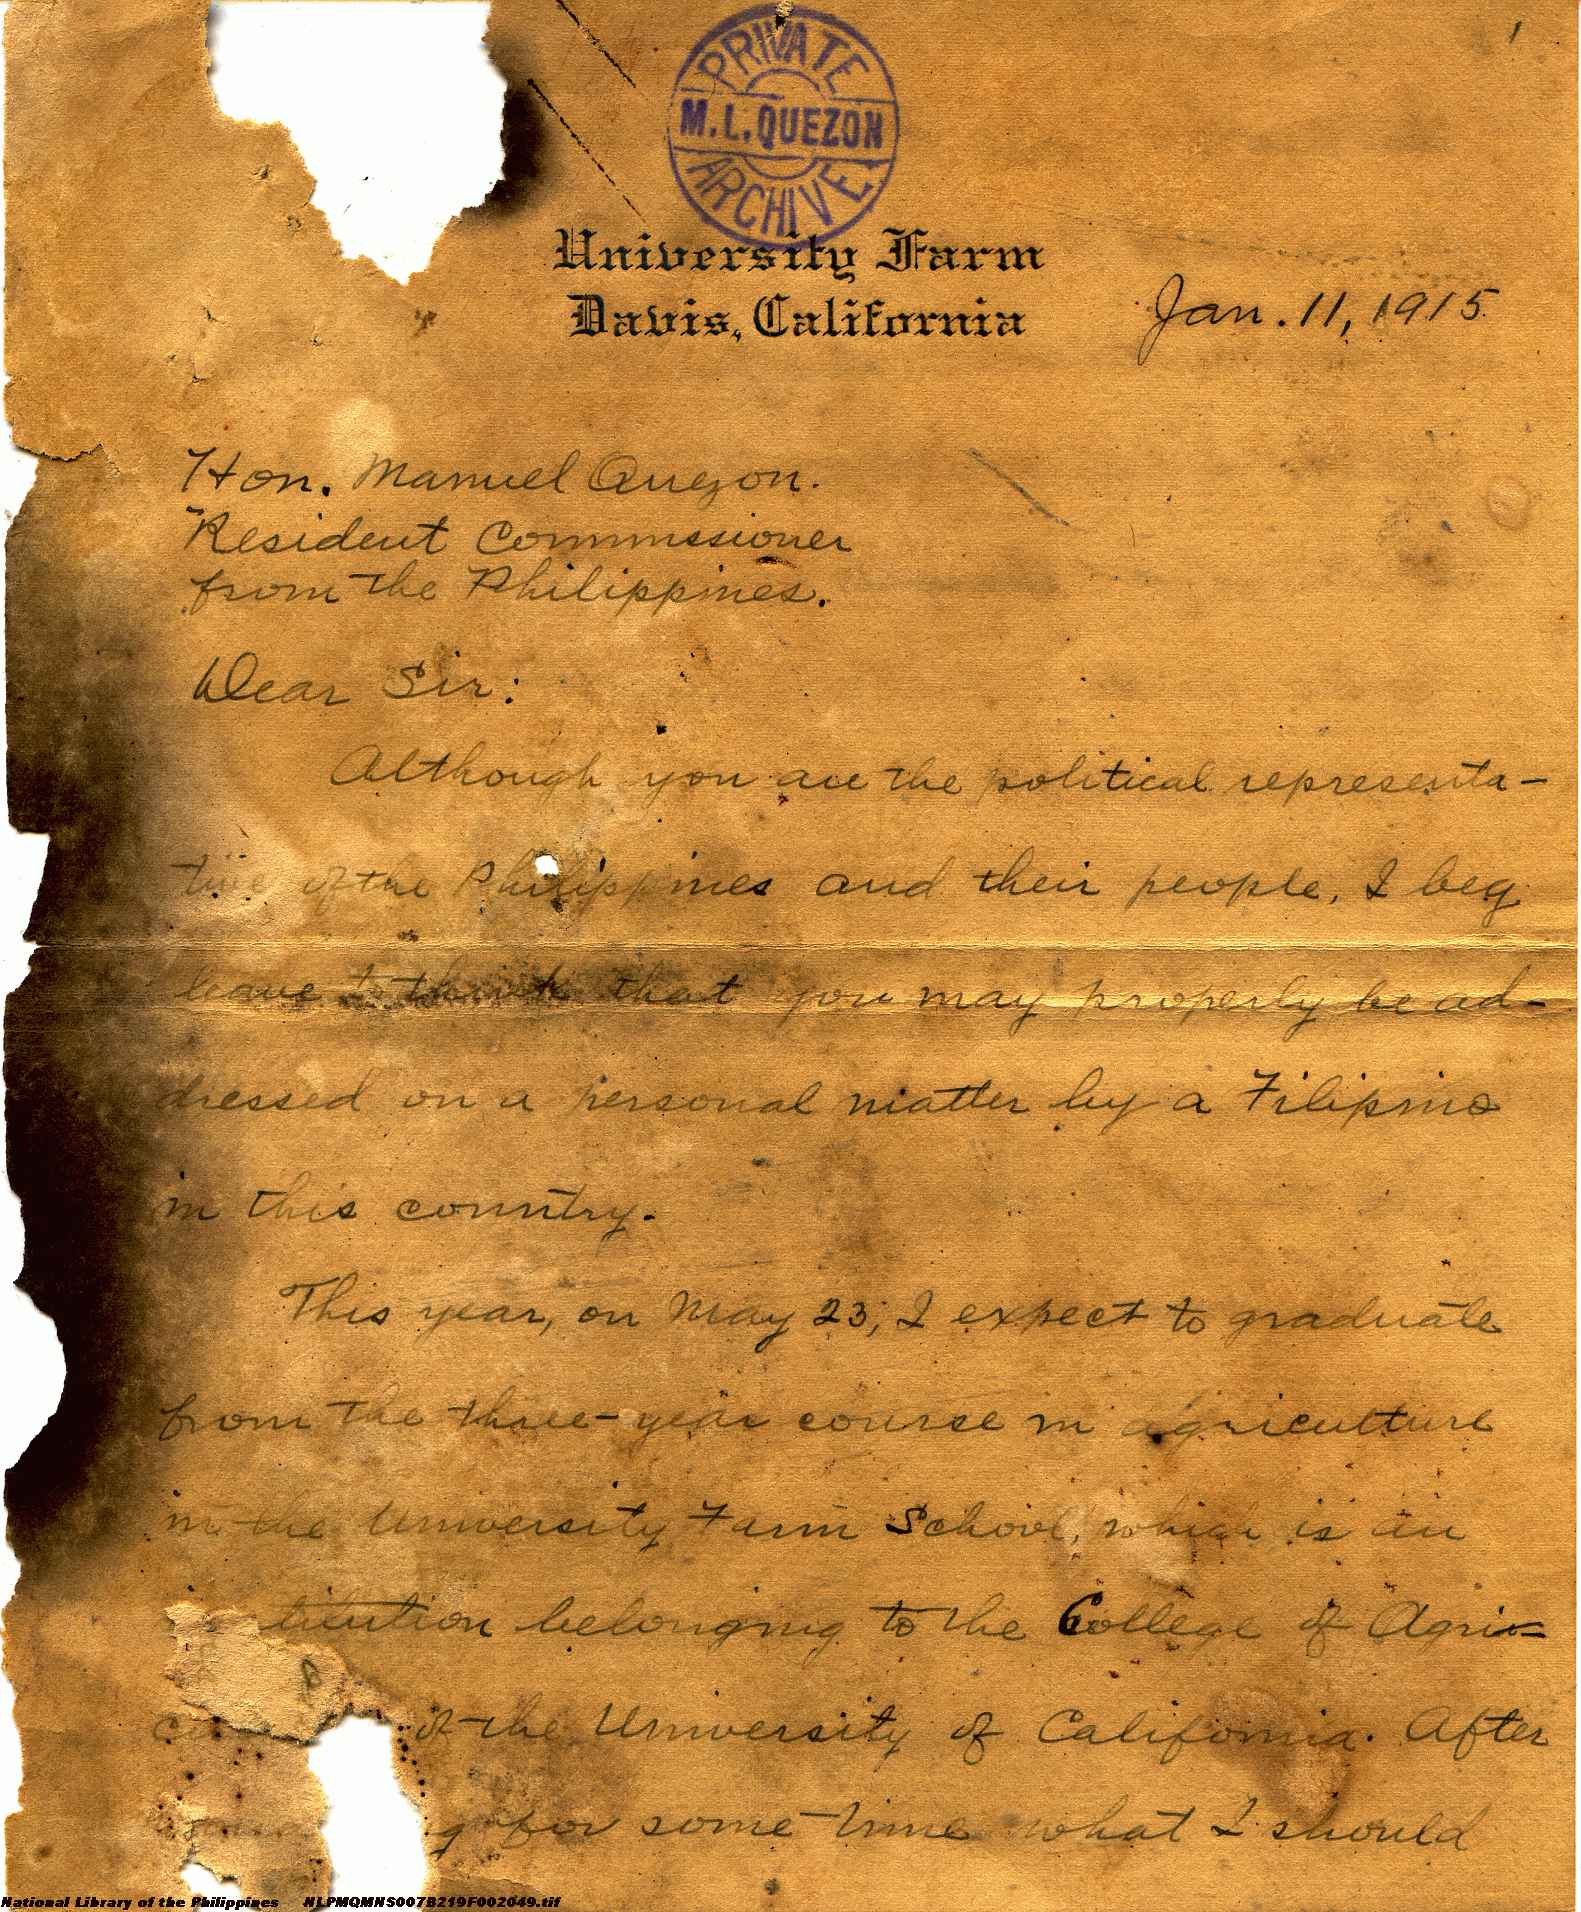 1
PRIVATE
M. L. QUEZON
ARCHIVE
University Farm
Davis, California
Jan. 11, 1915.
Hon. Manuel Quezon.
Resident Commissioner
from the Philippines.
Dear Sir:
Although you are the political representa-
tive of the Philippines and their people, I beg
leave to think that you may properly be ad-
dressed on a personal matter by a Filipino
in this country.
This year, on May 23, I expect to graduate
from the three-year course in agriculture
in the University Farm School, which is an
titution belonging to the College of Agri-
of the University of California. After
g for some time what I should
National Library of the Philippines NLPMQMNS007B219F002049.tif